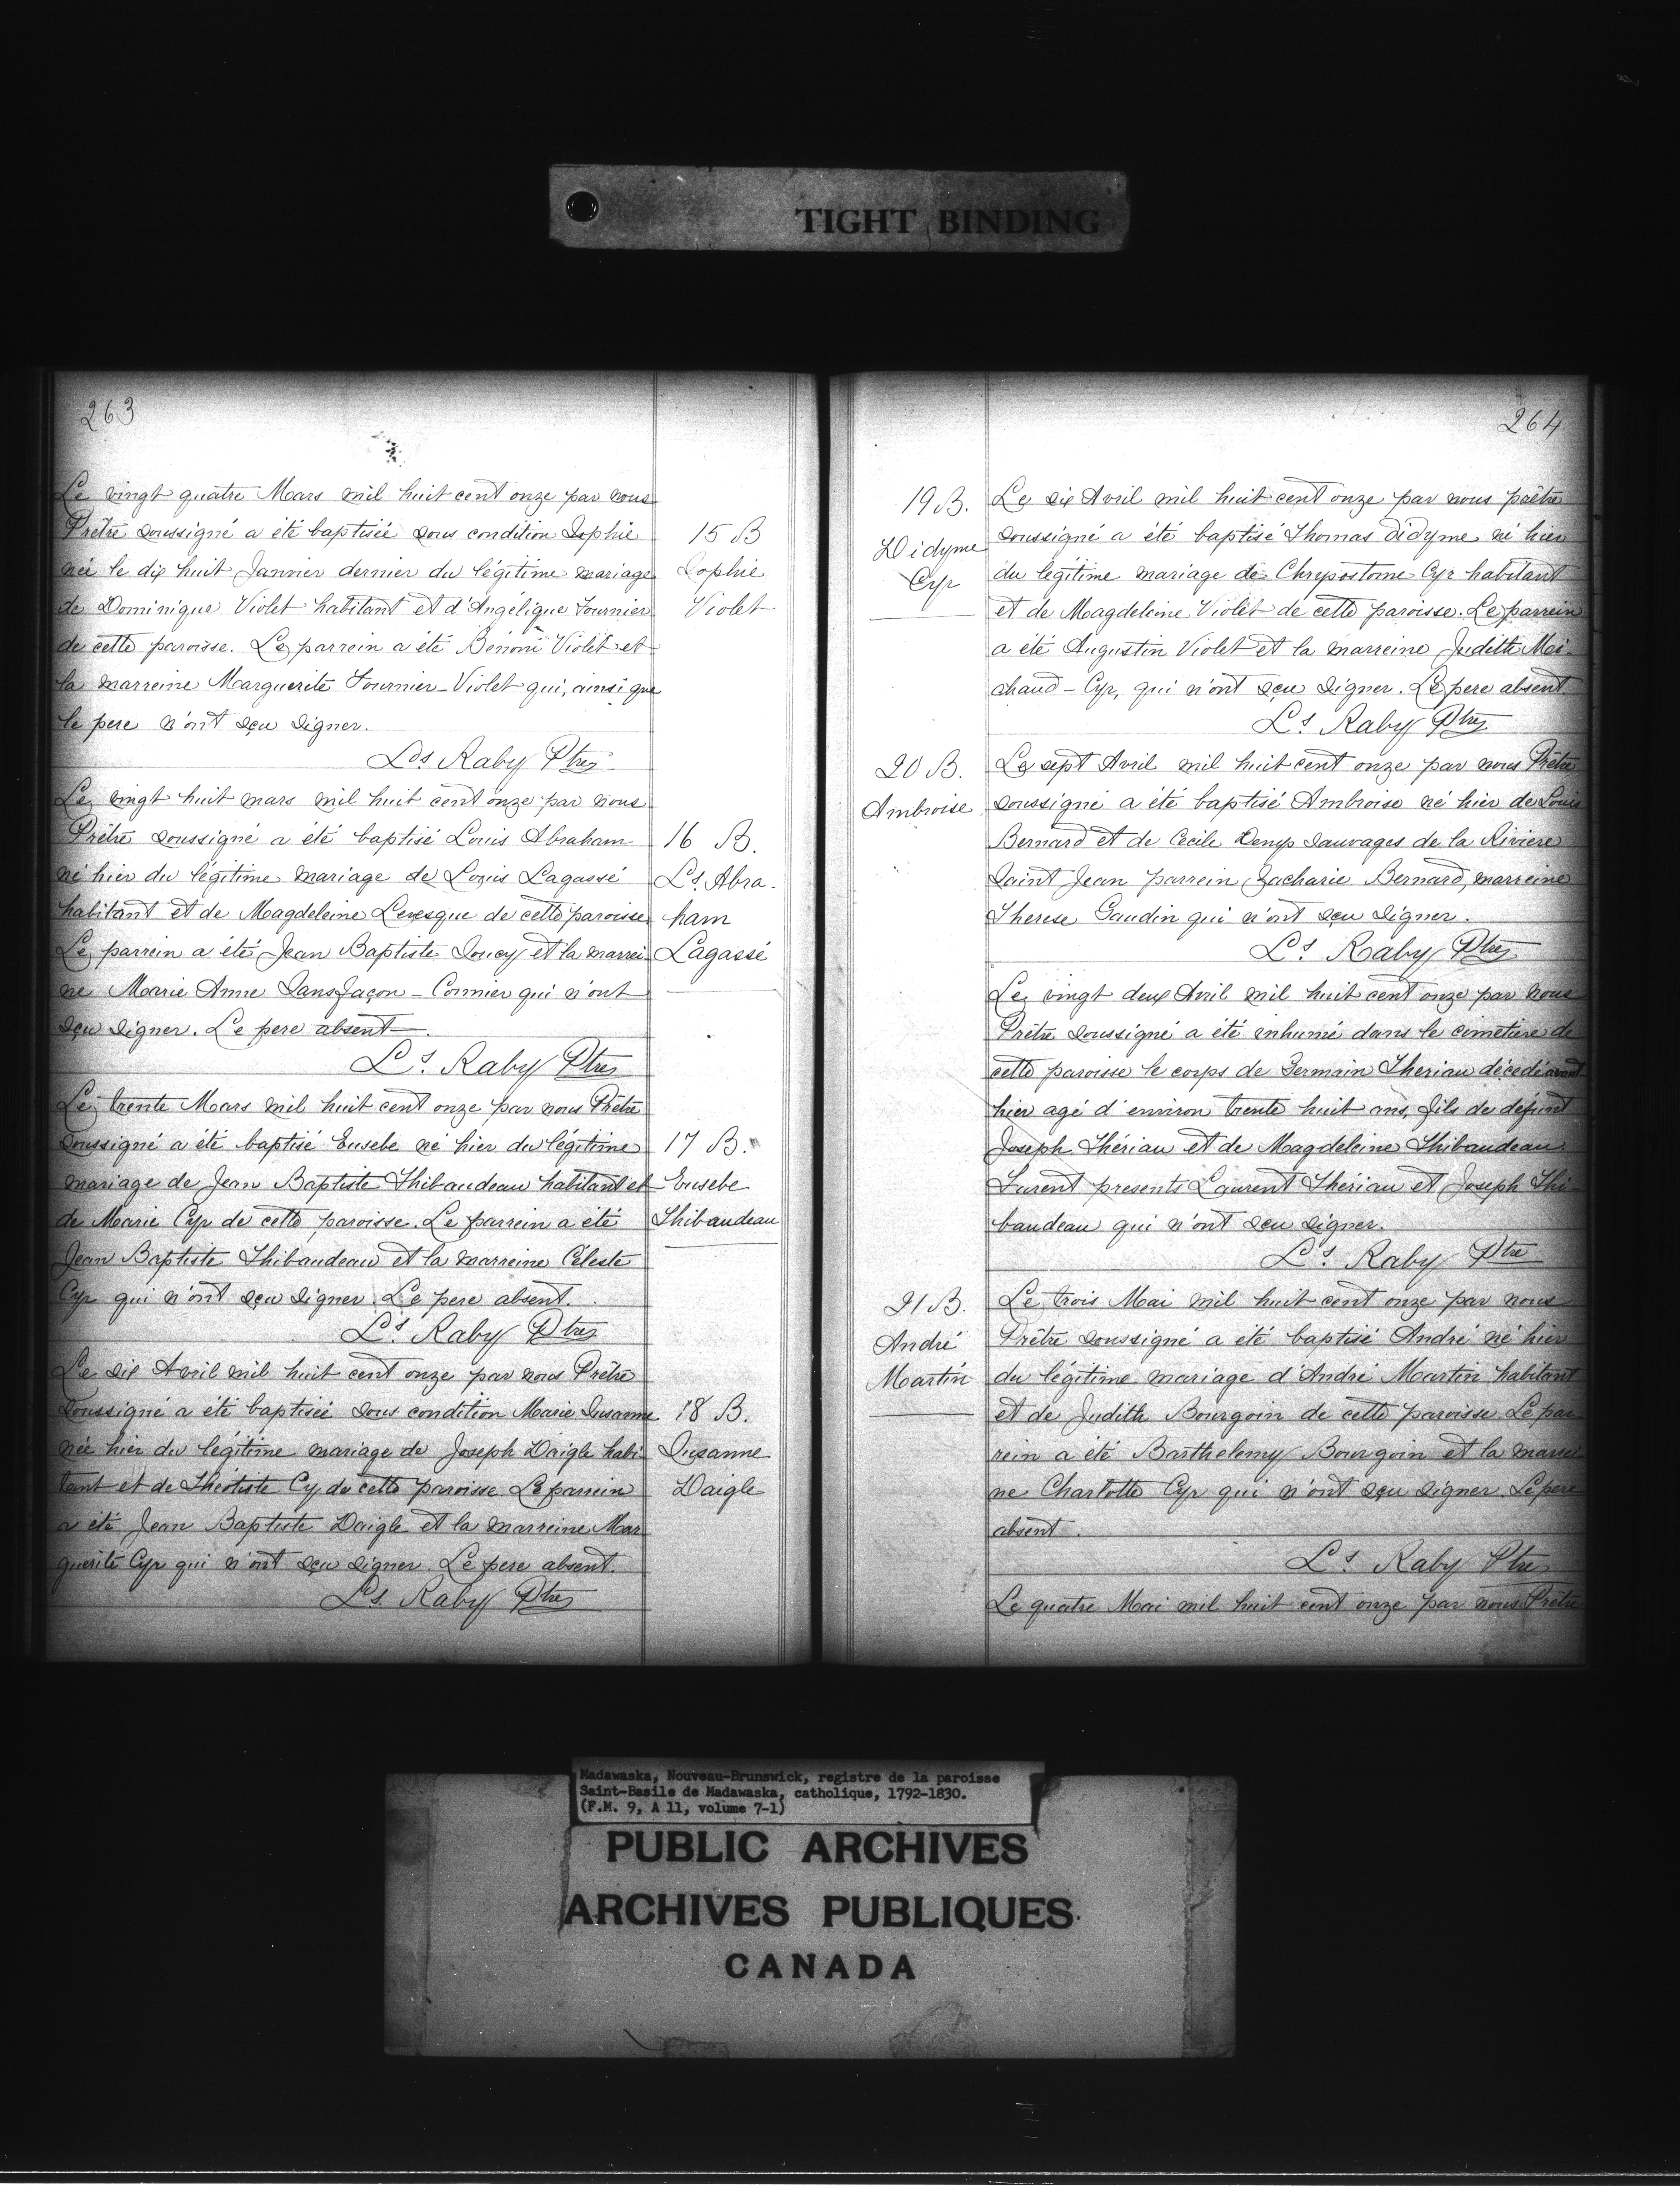 TIGHT BINDING
263
Le vingt quatre Mars mil huit cent onze par nous
Prêtre soussigné a été baptisée sous condition Sophie
née le dix huit Janvier dernier du légitime mariage
de Dominique Violet habitant et d'Angélique Fournier
de cette paroisse. Le parrein a été Bénoni Violet et
la marreine Marguerite Fournier-Violet qui, ainsi que
le pere n'ont sçu signer.
Ls Raby Ptre
15 B
Sophie
Violet
Le vingt huit mars mil huit cent onze par nous
Prêtre soussigné a été baptisé Louis Abraham
né hier du légitime mariage de Louis Lagassé
habitant et de Magdeleine Levesque de cette paroisse
Le parrein a été Jean Baptiste Soucy et la marrei
ne Marie Anne Sansfaçon-Cormier qui n'ont
sçu signer. Le pere absent.
Ls Raby Ptre
16 B.
Ls Abra.
ham
Lagassé
Le trente Mars mil huit cent onze par nous Prêtre
soussigné a été baptisé Eusebe né hier du légitime
mariage de Jean Baptiste Thibaudeau habitant et
de Marie Cyr de cette paroisse. Le parrein a été
Jean Baptiste Thibaudeau et la marreine Céleste
Cyr qui n'ont sçu signer. Le pere absent.
Ls Raby Ptre
17 B.
Eusebe
Thibaudeau
Le six Avril mil huit cent onze par nous Prêtre
soussigné a été baptisée sous condition Marie Susanne
née hier du légitime mariage de Joseph Daigle habi
tant et de Théotiste Cy de cette paroisse. Le parrein
a été Jean Baptiste Daigle et la marreine Mar
guerite Cyr qui n'ont sçu signer. Le pere absent.
Ls Raby Ptre
18 B.
Susanne
Daigle
264
19 B.
Didyme
Cyr
Le six Avril mil huit cent onze par nous prêtre
soussigné a été baptisé Thomas Didyme né hier
du légitime mariage de Chrysostome Cyr habitant
et de Magdeleine Violet de cette paroisse. Le parrein
a été Augustin Violet et la marreine Judith Mi-
chaud-Cyr, qui n'ont sçu signer. Le pere absent
Ls Raby Ptre
20 B.
Ambroise
Le sept Avril mil huit cent onze par nous Prêtre
soussigné a été baptisé Ambroise né hier de Louis
Bernard et de Cecile Denys sauvages de la Riviere
Saint Jean parrein Zacharie Bernard, marreine
Therese Gaudin qui n'ont sçu signer.
Ls Raby Ptre
Le vingt deux Avril mil huit cent onze par nous
Prêtre soussigné a été inhumé dans le cimetiere de
cette paroisse le corps de Germain Theriau décédé avant
hier agé d'environ trente huit ans, fils de défunt
Joseph Thériau et de Magdeleine Thibaudeau.
Furent presents Laurent Thériau et Joseph Thi
baudeau qui n'ont sçu signer.
Ls Raby Ptre
21 B.
André
Martin
Le trois Mai mil huit cent onze par nous
Prêtre soussigné a été baptisé André né hier
du légitime mariage d'André Martin habitant
et de Judith Bourgoin de cette paroisse Le par
rein a été Barthelemy Bourgoin et la marrei
ne Charlotte Cyr qui n'ont sçu signer. Le pere
absent.
Ls Raby Ptre
Le quatre Mai mil huit cent onze par nous Prêtre
Madawaska, Nouveau-Brunswick, registre de la paroisse
Saint-Basile de Madawaska, catholique, 1792-1830.
(F.M. 9, A 11, volume 7-1)
PUBLIC ARCHIVES
ARCHIVES PUBLIQUES
CANADA